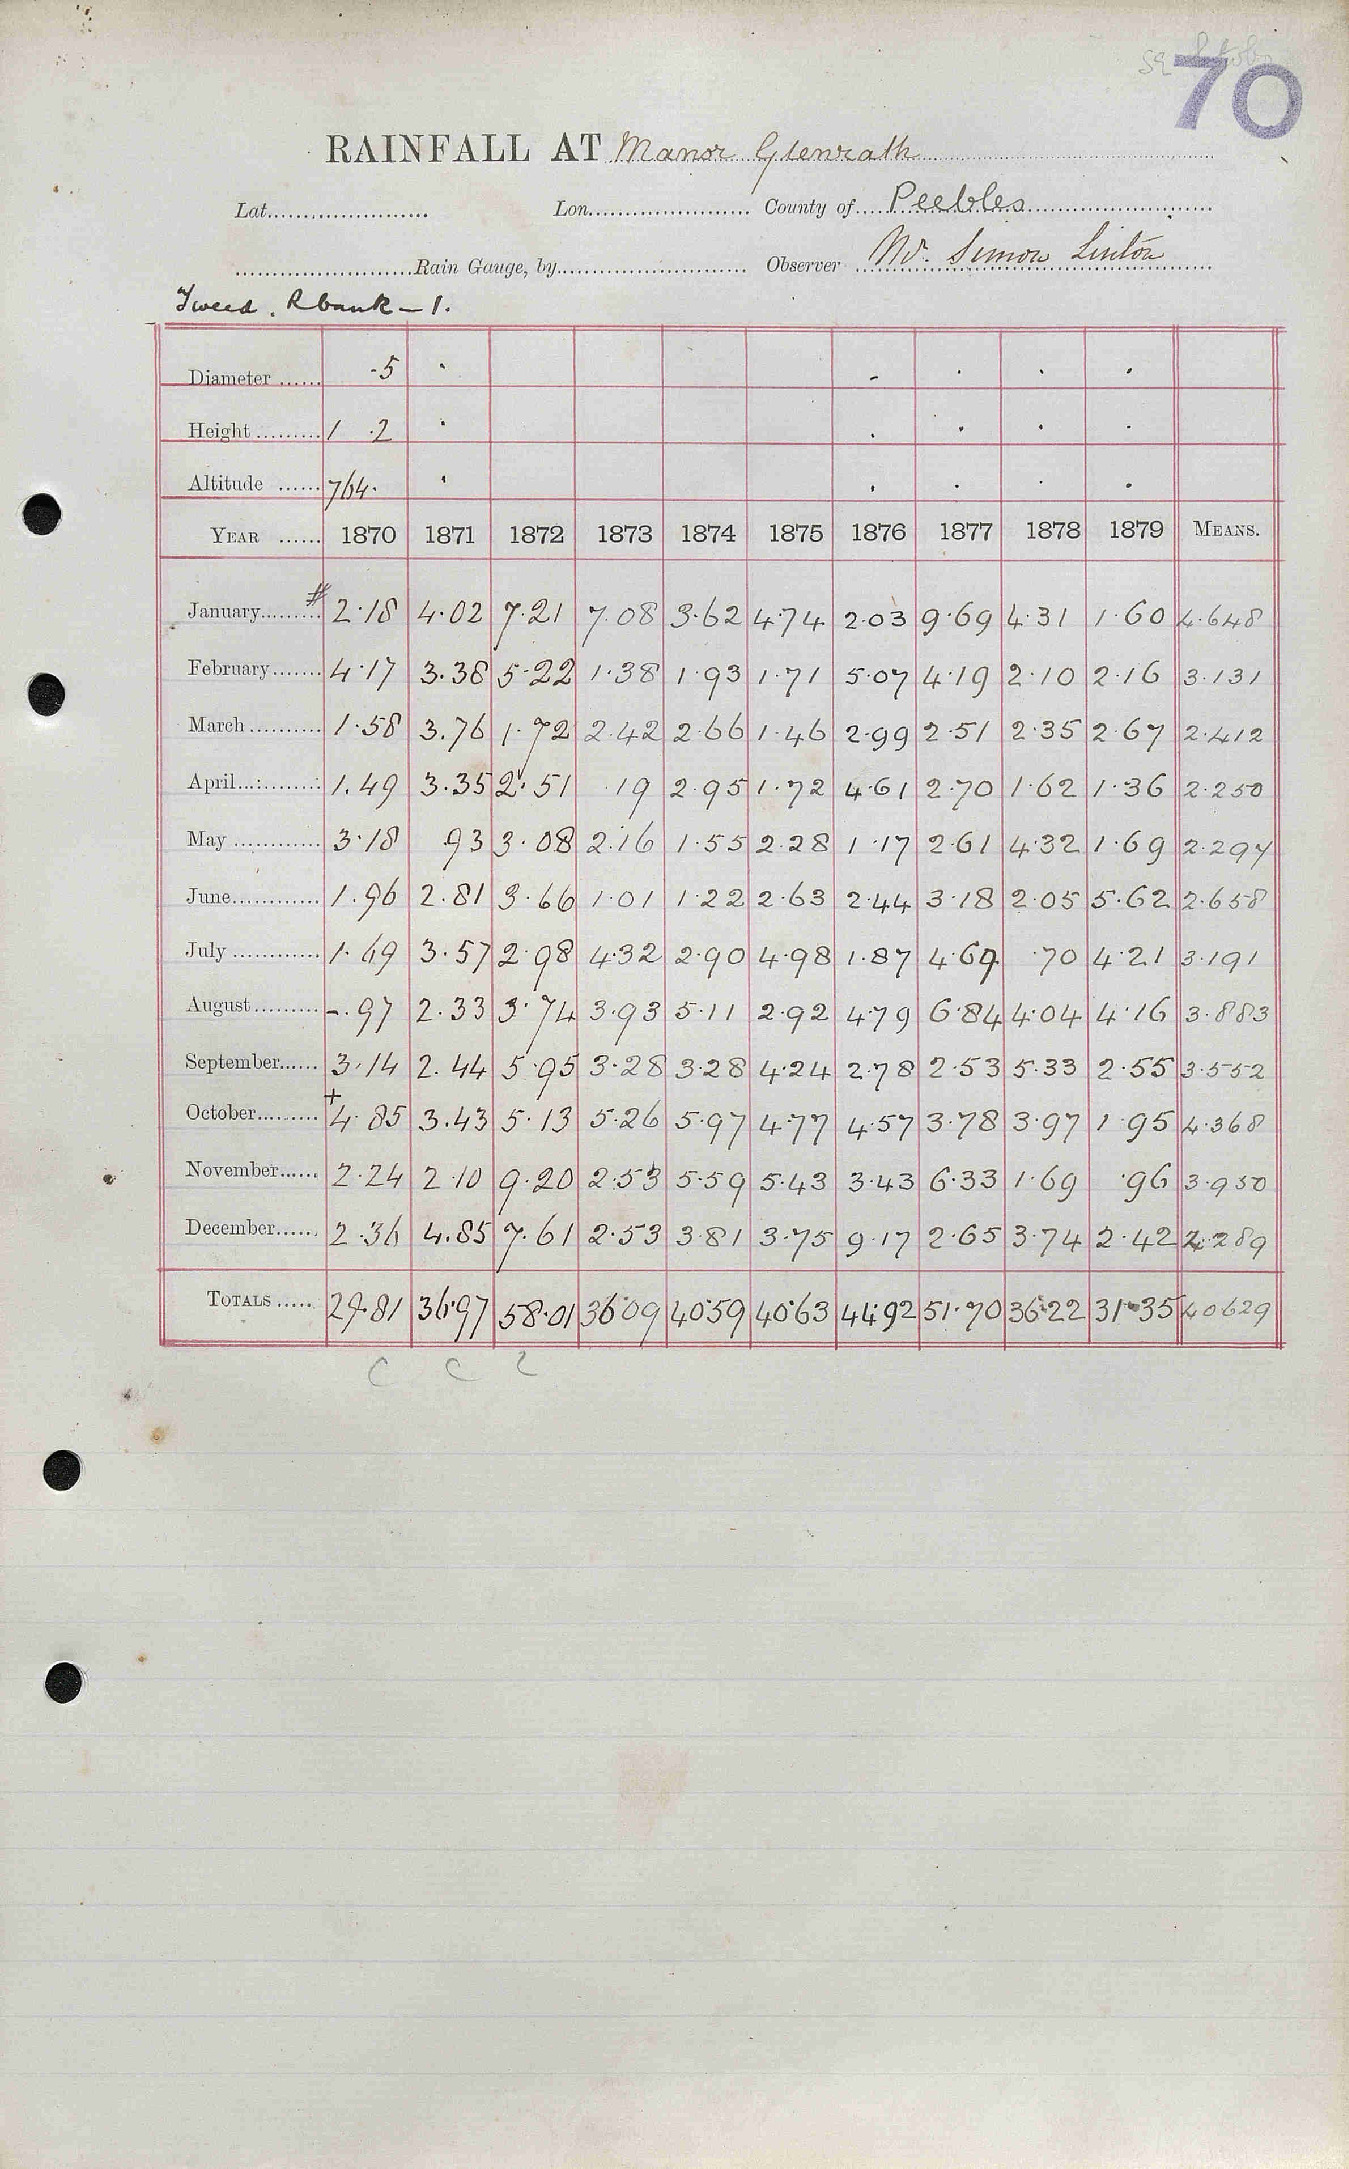 70
RAINFALL AT Manor Glenrath
Lat. Lon. County of Peebles
Rain Gauge, by Observer Mr. Simon Linton
Tweed. R bank - 1.
Diameter ...... 5
Height ......... 1 .2
Altitude ...... 764.
YEAR ...... 1870 1871 1872 1873 1874 1875 1876 1877 1878 1879 MEANS.
January......... # 2.18 4.02 7.21 7.08 3.62 4.74 2.03 9.69 4.31 1.60 4.648
February....... 4.17 3.38 5.22 1.38 1.93 1.71 5.07 4.19 2.10 2.16 3.131
March .......... 1.58 3.76 1.72 2.42 2.66 1.46 2.99 2.51 2.35 2.67 2.412
April............ 1.49 3.35 2.51 .19 2.95 1.72 4.61 2.70 1.62 1.36 2.250
May ............ 3.18 .93 3.08 2.16 1.55 2.28 1.17 2.61 4.32 1.69 2.297
June............ 1.96 2.81 3.66 1.01 1.22 2.63 2.44 3.18 2.05 5.62 2.658
July ............ 1.69 3.57 2.98 4.32 2.90 4.98 1.87 4.69 .70 4.21 3.191
August......... -.97 2.33 3.74 3.93 5.11 2.92 4.79 6.84 4.04 4.16 3.883
September...... 3.14 2.44 5.95 3.28 3.28 4.24 2.78 2.53 5.33 2.55 3.552
October......... + 4.85 3.43 5.13 5.26 5.97 4.77 4.57 3.78 3.97 1.95 4.368
November...... 2.24 2.10 9.20 2.53 5.59 5.43 3.43 6.33 1.69 .96 3.950
December...... 2.36 4.85 7.61 2.53 3.81 3.75 9.17 2.65 3.74 2.42 4.289
TOTALS ..... 29.81 36.97 58.01 36.09 40.59 40.63 44.92 51.70 36.22 31.35 40629
C C C